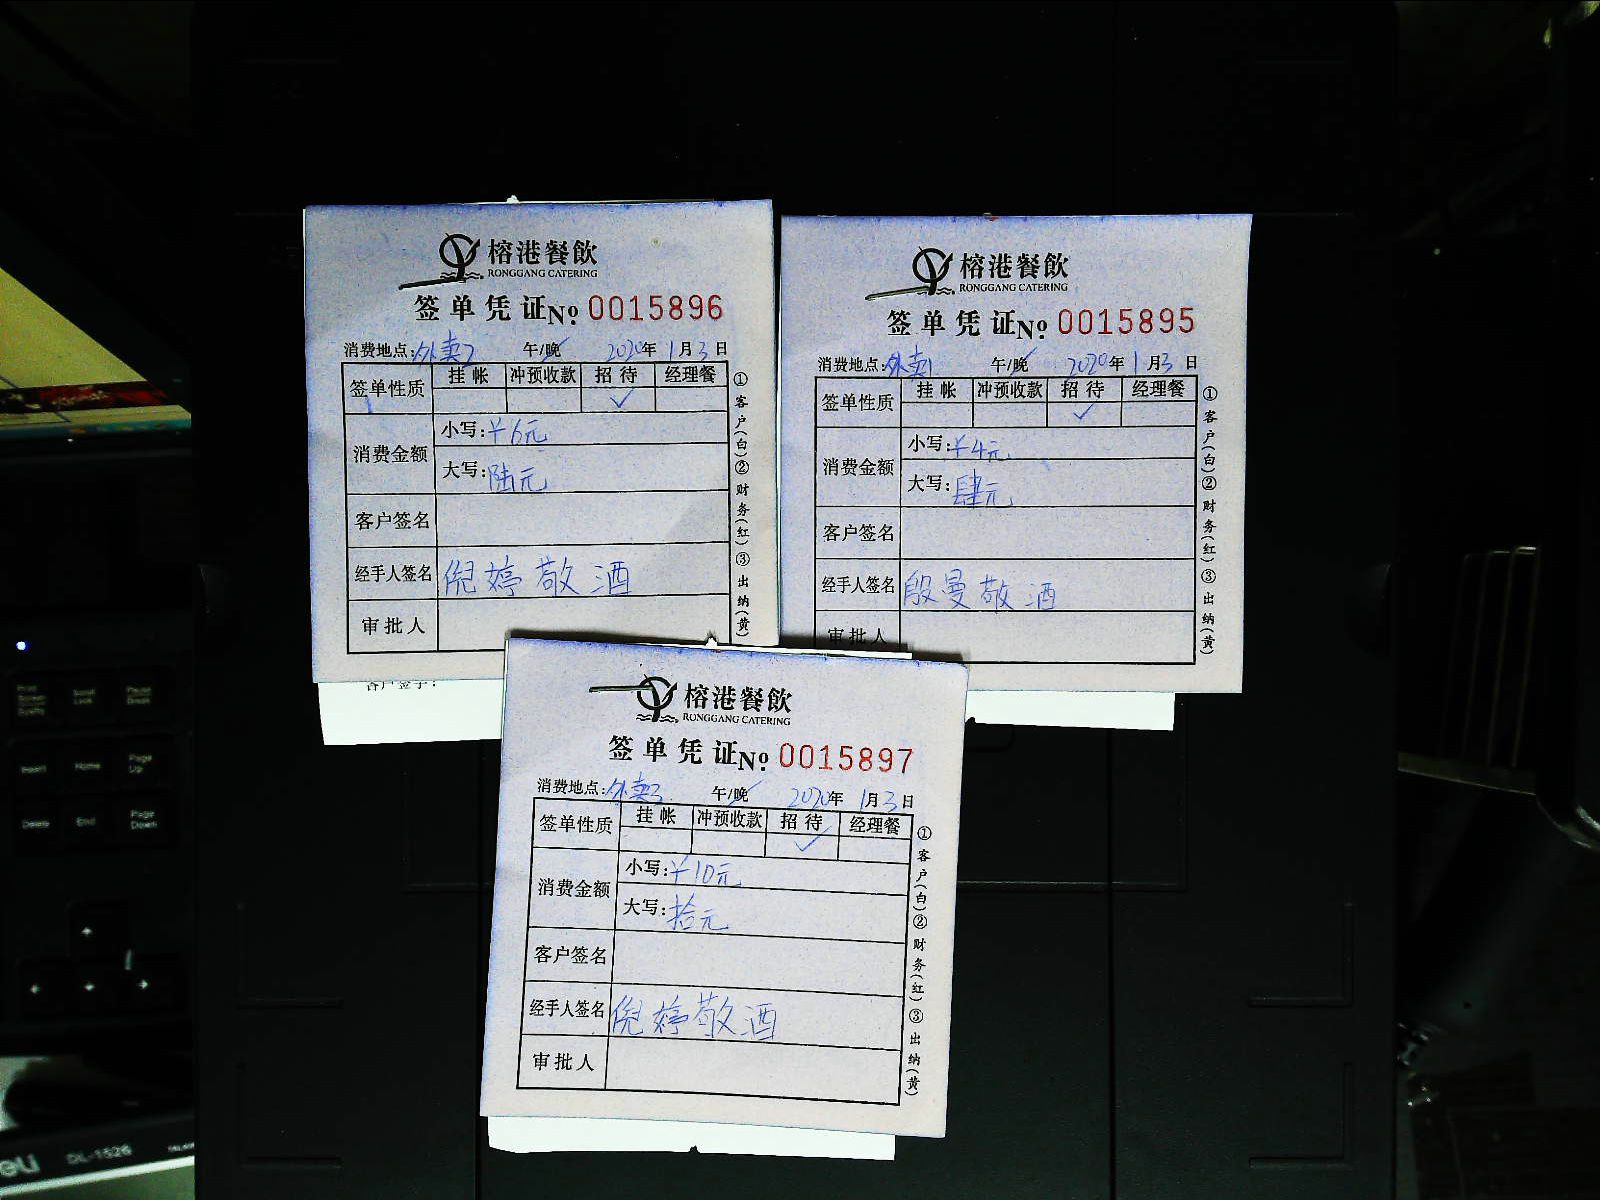 榕港餐飲
RONGGANG CATERING
签单凭证 № 0015896
消费地点:外卖2 午/晚 2020年1月3日
签单性质 挂帐 冲预收款 招待 经理餐
✓
消费金额 小写:¥6元
大写:陆元
客户签名
经手人签名 倪婷敬酒
审批人
①客户(白)②财务(红)③出纳(黄)
客户签字:
榕港餐飲
RONGGANG CATERING
签单凭证 № 0015895
消费地点:外卖1 午/晚 2020年1月3日
签单性质 挂帐 冲预收款 招待 经理餐
✓
消费金额 小写:¥4元
大写:肆元
客户签名
经手人签名 殷曼敬酒
审批人
①客户(白)②财务(红)③出纳(黄)
榕港餐飲
RONGGANG CATERING
签单凭证 № 0015897
消费地点:外卖3 午/晚 2020年1月3日
签单性质 挂帐 冲预收款 招待 经理餐
✓
消费金额 小写:¥10元
大写:拾元
客户签名
经手人签名 倪婷敬酒
审批人
①客户(白)②财务(红)③出纳(黄)
Insert Home Page Up
Delete End Page Down
deli DL-1526